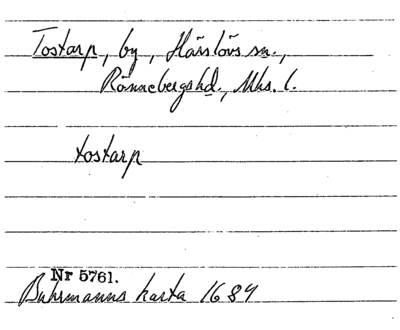 Tostarp, by, Härslövs sn.,
Rönnebergs hd., Mhs. l.
tostarp
Nr 5761.
Buhrmanns karta 1684